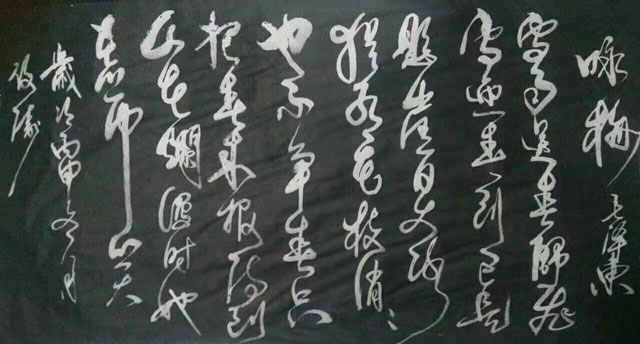 咏梅 毛泽东
风雨送春归飞
雪迎春到已是
悬崖百丈冰
犹有花枝俏〻
也不争春只
把春来报待到
山花烂漫时她
在丛中笑
歲次丙申冬月